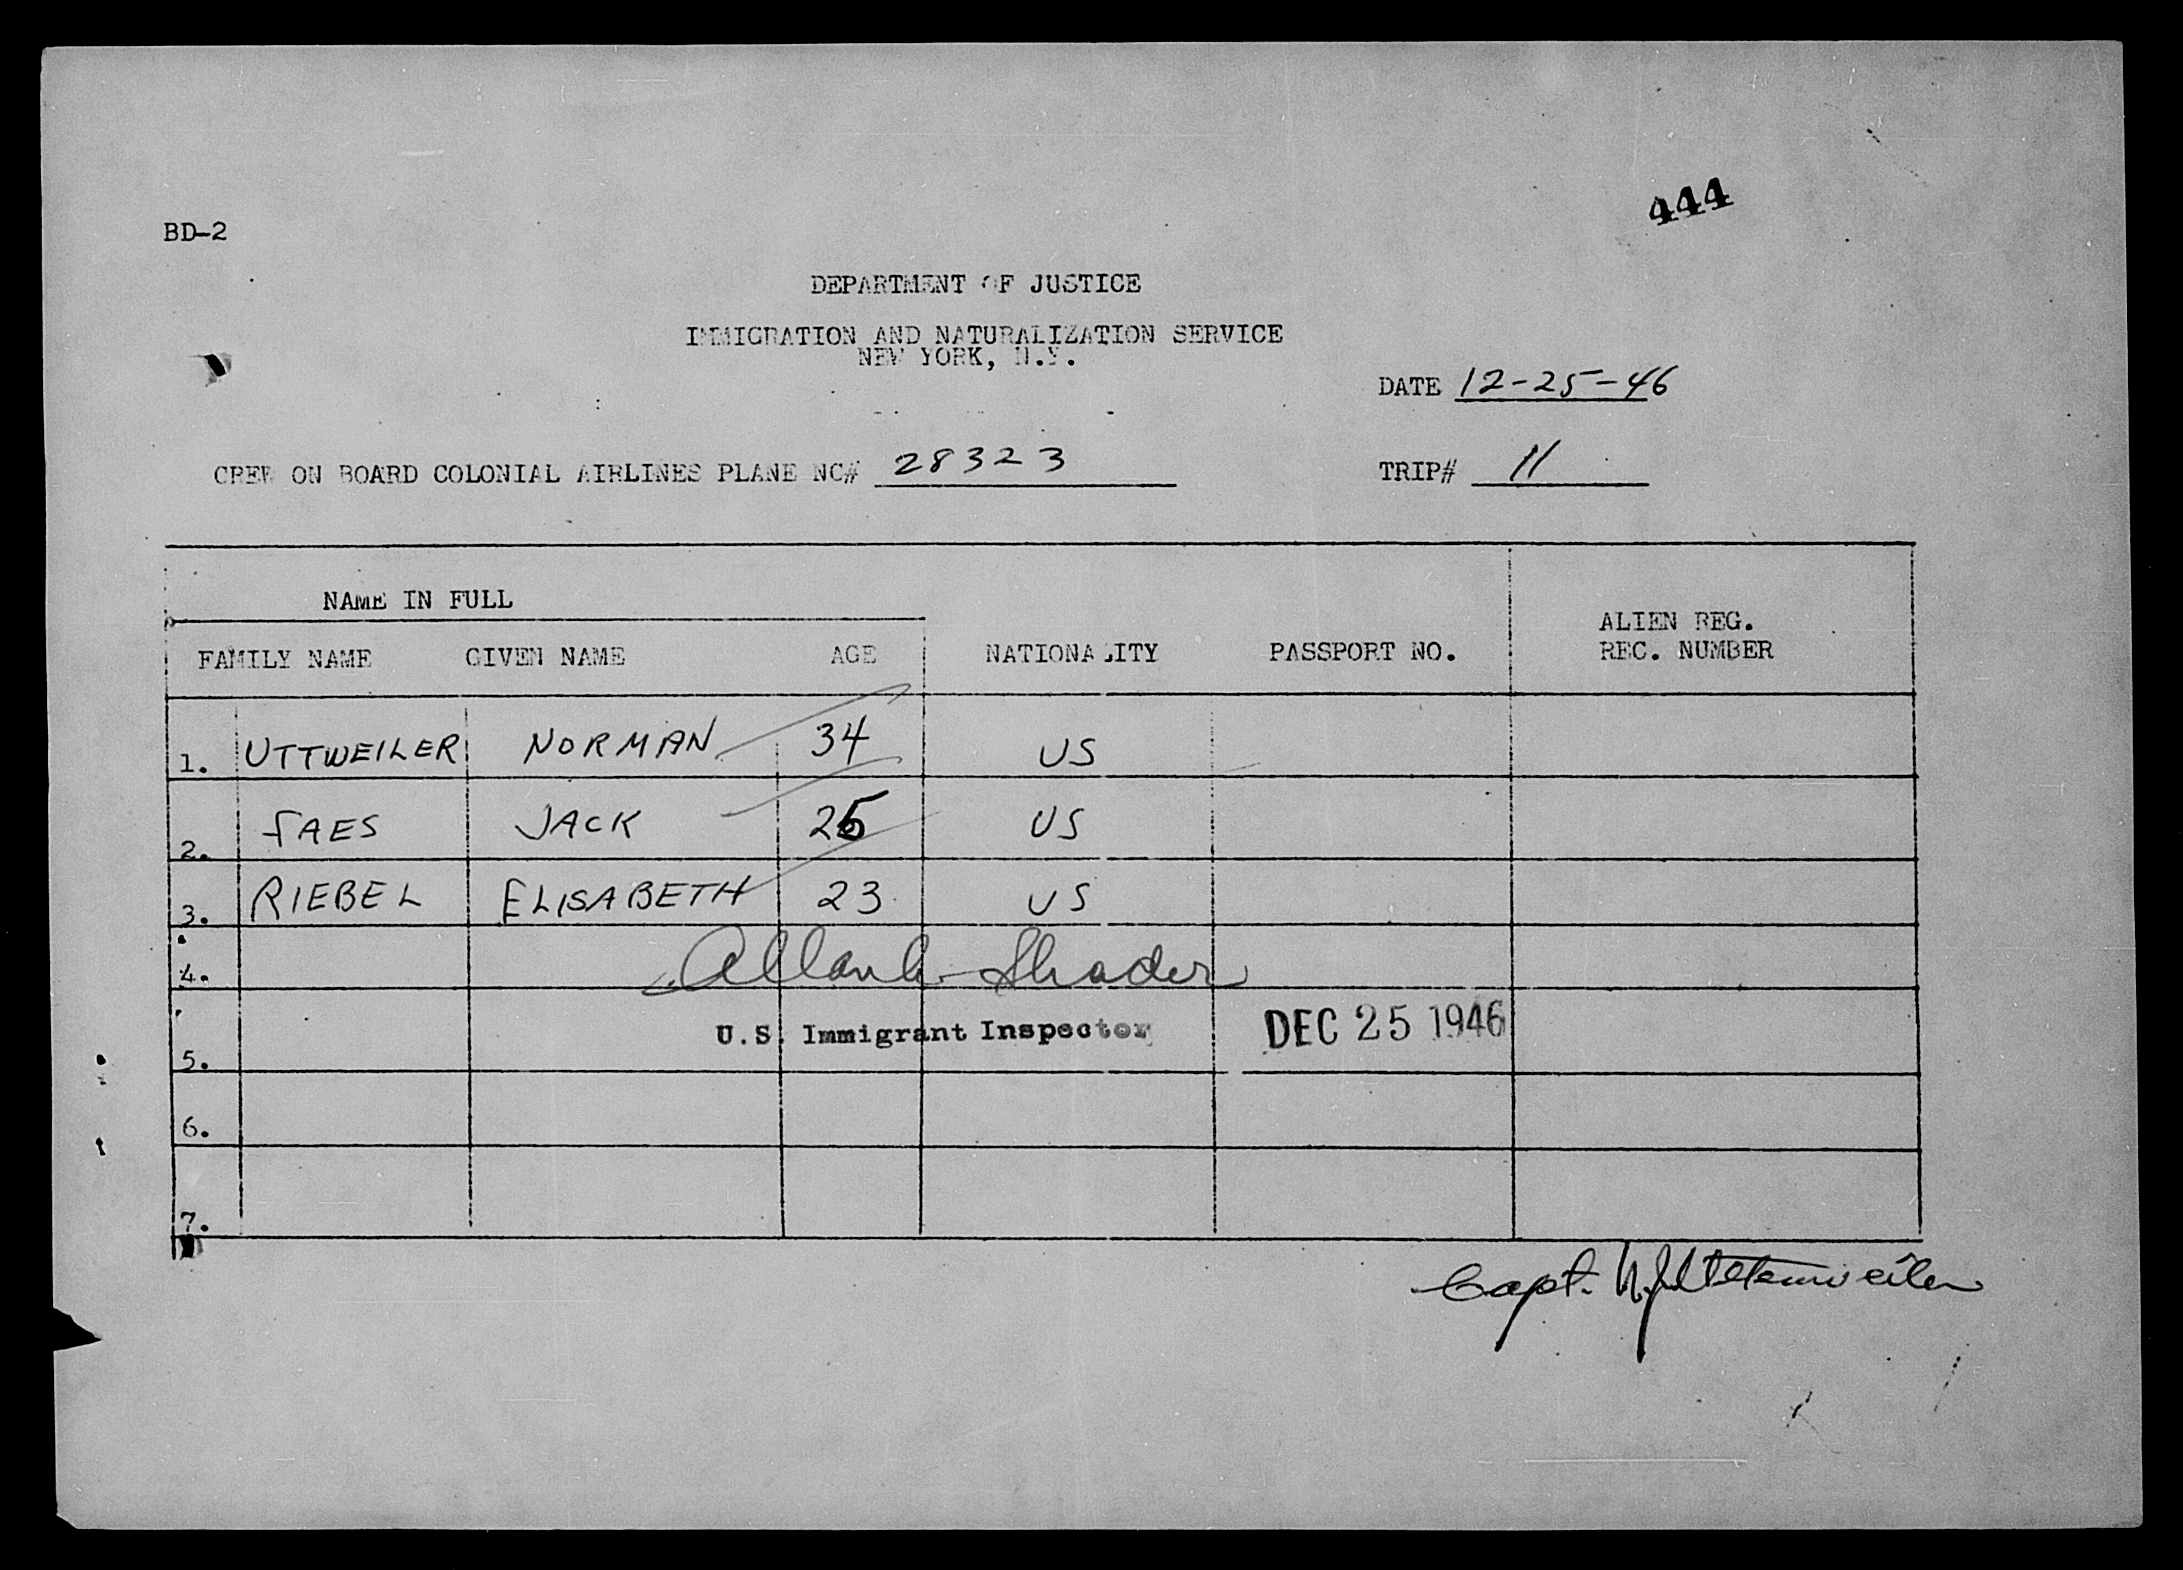 444
BD-2
DEPARTMENT OF JUSTICE
IMMIGRATION AND NATURALIZATION SERVICE
NEW YORK, N.Y.
DATE 12-25-46
CREW ON BOARD COLONIAL AIRLINES PLANE NC# 28323 TRIP# 11
NAME IN FULL
FAMILY NAME GIVEN NAME AGE NATIONALITY PASSPORT NO. ALIEN REG.
REC. NUMBER
1. UTTWEILER NORMAN 34 US
2. FAES JACK 25 US
3. RIEBEL ELISABETH 23 US
4. Shader
U.S. Immigrant Inspector DEC 25 1946
5.
6.
7.
Capt.